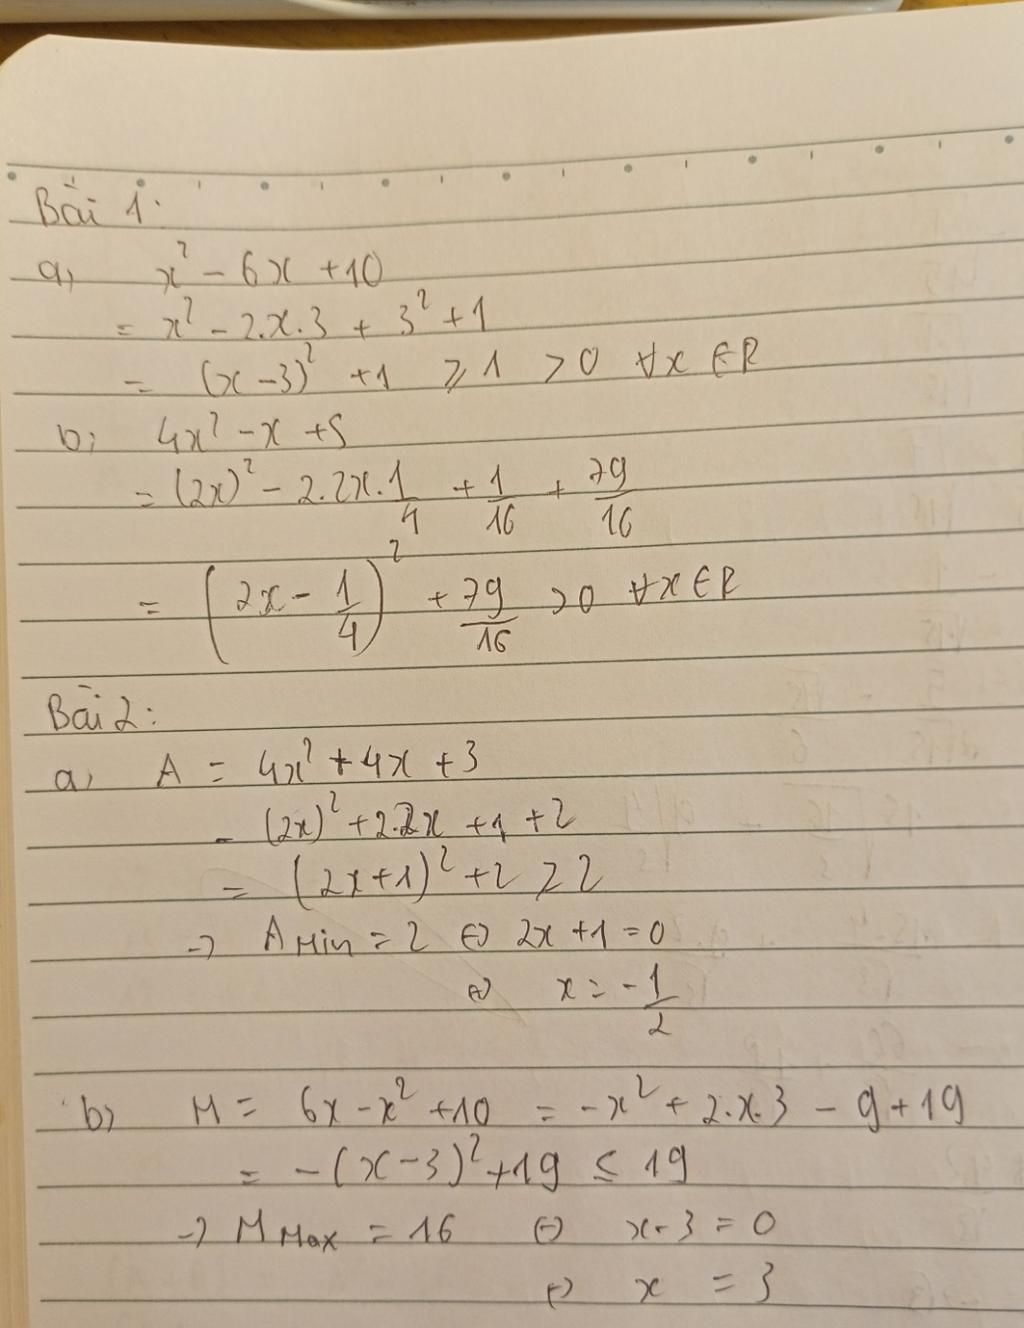 Bài 1:
a, x² - 6x + 10
= x² - 2.x.3 + 3² + 1
= (x - 3)² + 1 ⩾ 1 > 0 ∀x ∈ R
b, 4x² - x + 5
= (2x)² - 2.2x.1/4 + 1/16 + 79/16
= (2x - 1/4)² + 79/16 > 0 ∀x ∈ R
Bài 2:
a, A = 4x² + 4x + 3
= (2x)² + 2.2x + 1 + 2
= (2x+1)² + 2 ⩾ 2
→ A Min = 2 ⇔ 2x + 1 = 0
⇔ x = -1/2
b, M = 6x - x² + 10 = -x² + 2.x.3 - 9 + 19
= -(x-3)² + 19 ≤ 19
→ M Max = 16 ⇔ x - 3 = 0
⇔ x = 3